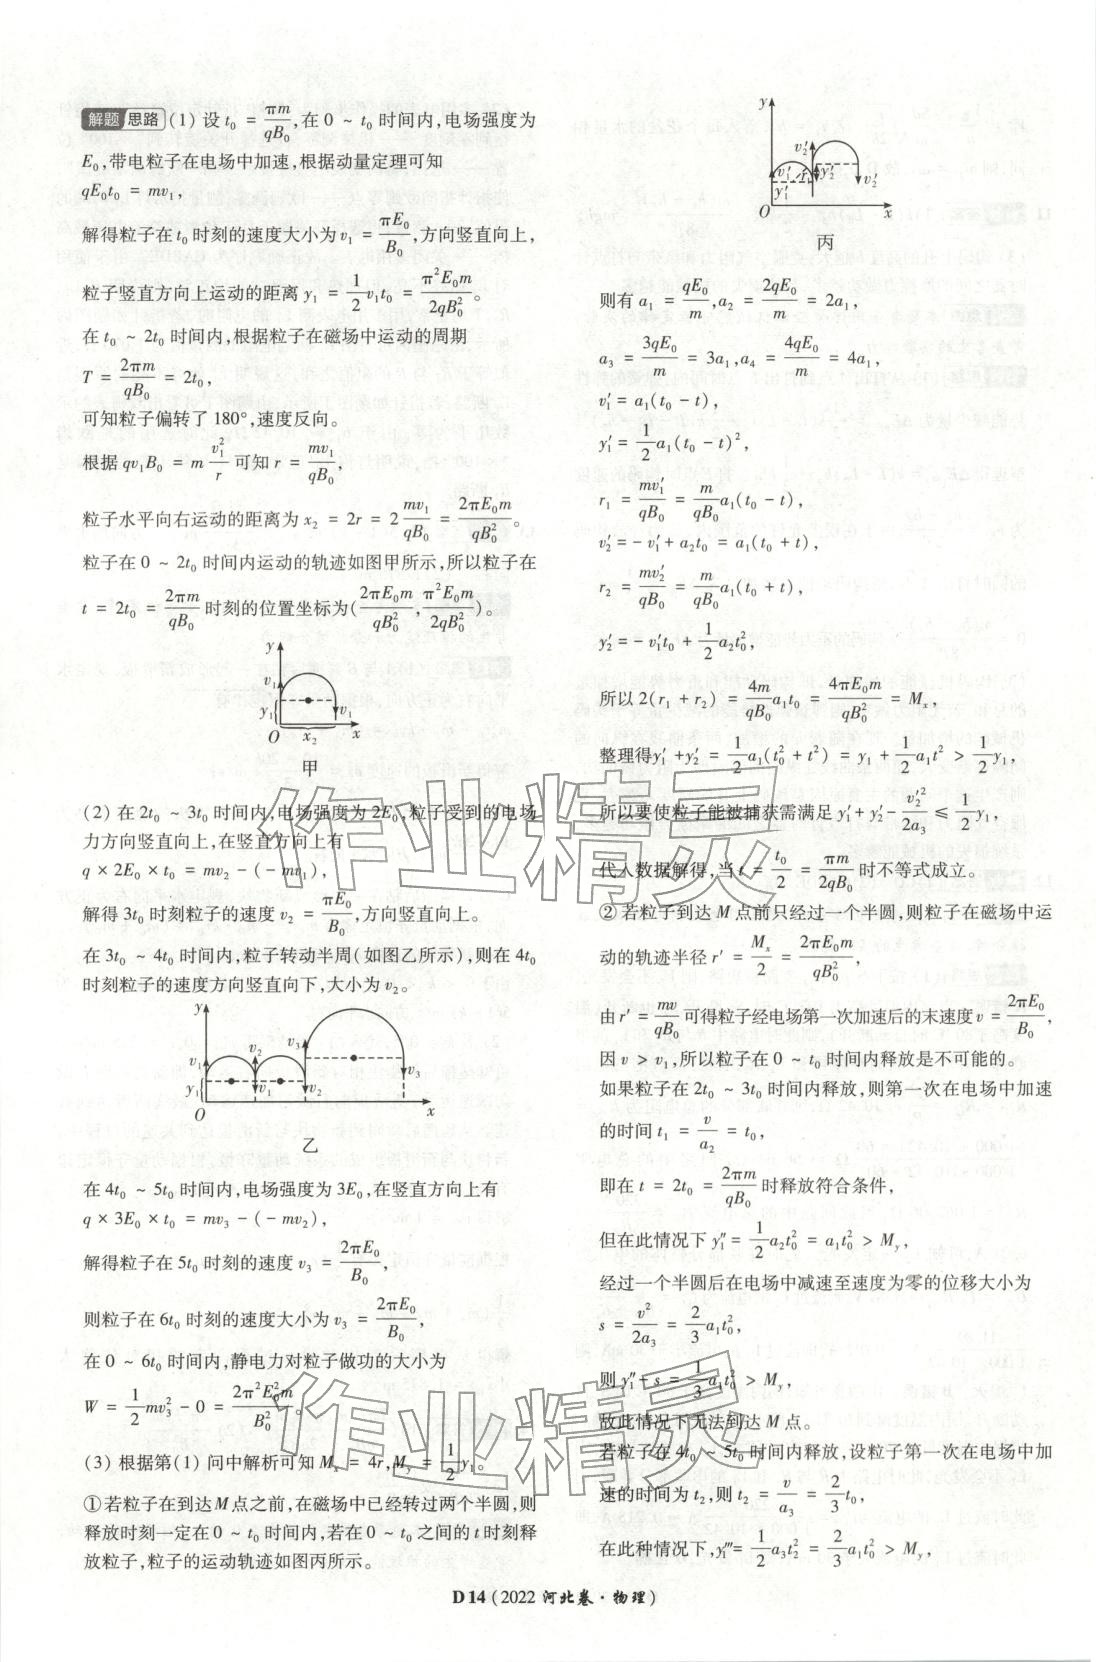 解题思路 (1) 设 t₀ = πm/(qB₀),在 0 ~ t₀ 时间内,电场强度为
E₀,带电粒子在电场中加速,根据动量定理可知
qE₀t₀ = mv₁,
解得粒子在 t₀ 时刻的速度大小为 v₁ = πE₀/B₀,方向竖直向上,
粒子竖直方向上运动的距离 y₁ = (1/2)v₁t₀ = π²E₀m/(2qB₀²)。
在 t₀ ~ 2t₀ 时间内,根据粒子在磁场中运动的周期
T = 2πm/(qB₀) = 2t₀,
可知粒子偏转了 180°,速度反向。
根据 qv₁B₀ = m v₁²/r 可知 r = mv₁/(qB₀),
粒子水平向右运动的距离为 x₂ = 2r = 2 mv₁/(qB₀) = 2πE₀m/(qB₀²)。
粒子在 0 ~ 2t₀ 时间内运动的轨迹如图甲所示,所以粒子在
t = 2t₀ = 2πm/(qB₀) 时刻的位置坐标为(2πE₀m/(qB₀²), π²E₀m/(2qB₀²))。
y
v₁
y₁ v₁
O x₂ x
甲
(2) 在 2t₀ ~ 3t₀ 时间内,电场强度为 2E₀,粒子受到的电场
力方向竖直向上,在竖直方向上有
q × 2E₀ × t₀ = mv₂ - (-mv₁),
解得 3t₀ 时刻粒子的速度 v₂ = πE₀/B₀,方向竖直向上。
在 3t₀ ~ 4t₀ 时间内,粒子转动半周(如图乙所示),则在 4t₀
时刻粒子的速度方向竖直向下,大小为 v₂。
y
v₁ v₂ v₃
y₁ v₁ v₂ v₃
O x
乙
在 4t₀ ~ 5t₀ 时间内,电场强度为 3E₀,在竖直方向上有
q × 3E₀ × t₀ = mv₃ - (-mv₂),
解得粒子在 5t₀ 时刻的速度 v₃ = 2πE₀/B₀,
则粒子在 6t₀ 时刻的速度大小为 v₃ = 2πE₀/B₀,
在 0 ~ 6t₀ 时间内,静电力对粒子做功的大小为
W = (1/2)mv₃² - 0 = 2π²E₀²m/B₀²。
(3) 根据第(1) 问中解析可知 Mₓ = 4r, M_y = (1/2)y₁。
①若粒子在到达 M 点之前,在磁场中已经转过两个半圆,则
释放时刻一定在 0 ~ t₀ 时间内,若在 0 ~ t₀ 之间的 t 时刻释
放粒子,粒子的运动轨迹如图丙所示。
y
v₂′
v₁′ r₁ y₂′ v₂′
y₁′
O x
丙
则有 a₁ = qE₀/m, a₂ = 2qE₀/m = 2a₁,
a₃ = 3qE₀/m = 3a₁, a₄ = 4qE₀/m = 4a₁,
v₁′ = a₁(t₀ - t),
y₁′ = (1/2)a₁(t₀ - t)²,
r₁ = mv₁′/(qB₀) = (m/(qB₀))a₁(t₀ - t),
v₂′ = -v₁′ + a₂t₀ = a₁(t₀ + t),
r₂ = mv₂′/(qB₀) = (m/(qB₀))a₁(t₀ + t),
y₂′ = -v₁′t₀ + (1/2)a₂t₀²,
所以 2(r₁ + r₂) = (4m/(qB₀))a₁t₀ = 4πE₀m/(qB₀²) = Mₓ,
整理得 y₁′ + y₂′ = (1/2)a₁(t₀² + t²) = y₁ + (1/2)a₁t² > (1/2)y₁,
所以要使粒子能被捕获需满足 y₁′ + y₂′ - v₂′²/(2a₃) ≤ (1/2)y₁,
代入数据解得,当 t = t₀/2 = πm/(2qB₀) 时不等式成立。
②若粒子到达 M 点前只经过一个半圆,则粒子在磁场中运
动的轨迹半径 r′ = Mₓ/2 = 2πE₀m/(qB₀²),
由 r′ = mv/(qB₀) 可得粒子经电场第一次加速后的末速度 v = 2πE₀/B₀,
因 v > v₁,所以粒子在 0 ~ t₀ 时间内释放是不可能的。
如果粒子在 2t₀ ~ 3t₀ 时间内释放,则第一次在电场中加速
的时间 t₁ = v/a₂ = t₀,
即在 t = 2t₀ = 2πm/(qB₀) 时释放符合条件,
但在此情况下 y₁″ = (1/2)a₂t₀² = a₁t₀² > M_y,
经过一个半圆后在电场中减速至速度为零的位移大小为
s = v²/(2a₃) = (2/3)a₁t₀²,
则 y₁″ - s = (1/3)a₁t₀² > M_y,
故此情况下无法到达 M 点。
若粒子在 4t₀ ~ 5t₀ 时间内释放,设粒子第一次在电场中加
速的时间为 t₂,则 t₂ = v/a₃ = (2/3)t₀,
在此种情况下,y₁‴ = (1/2)a₃t₂² = (2/3)a₁t₀² > M_y,
作业精灵
作业精灵
D 14 (2022 河北卷·物理)